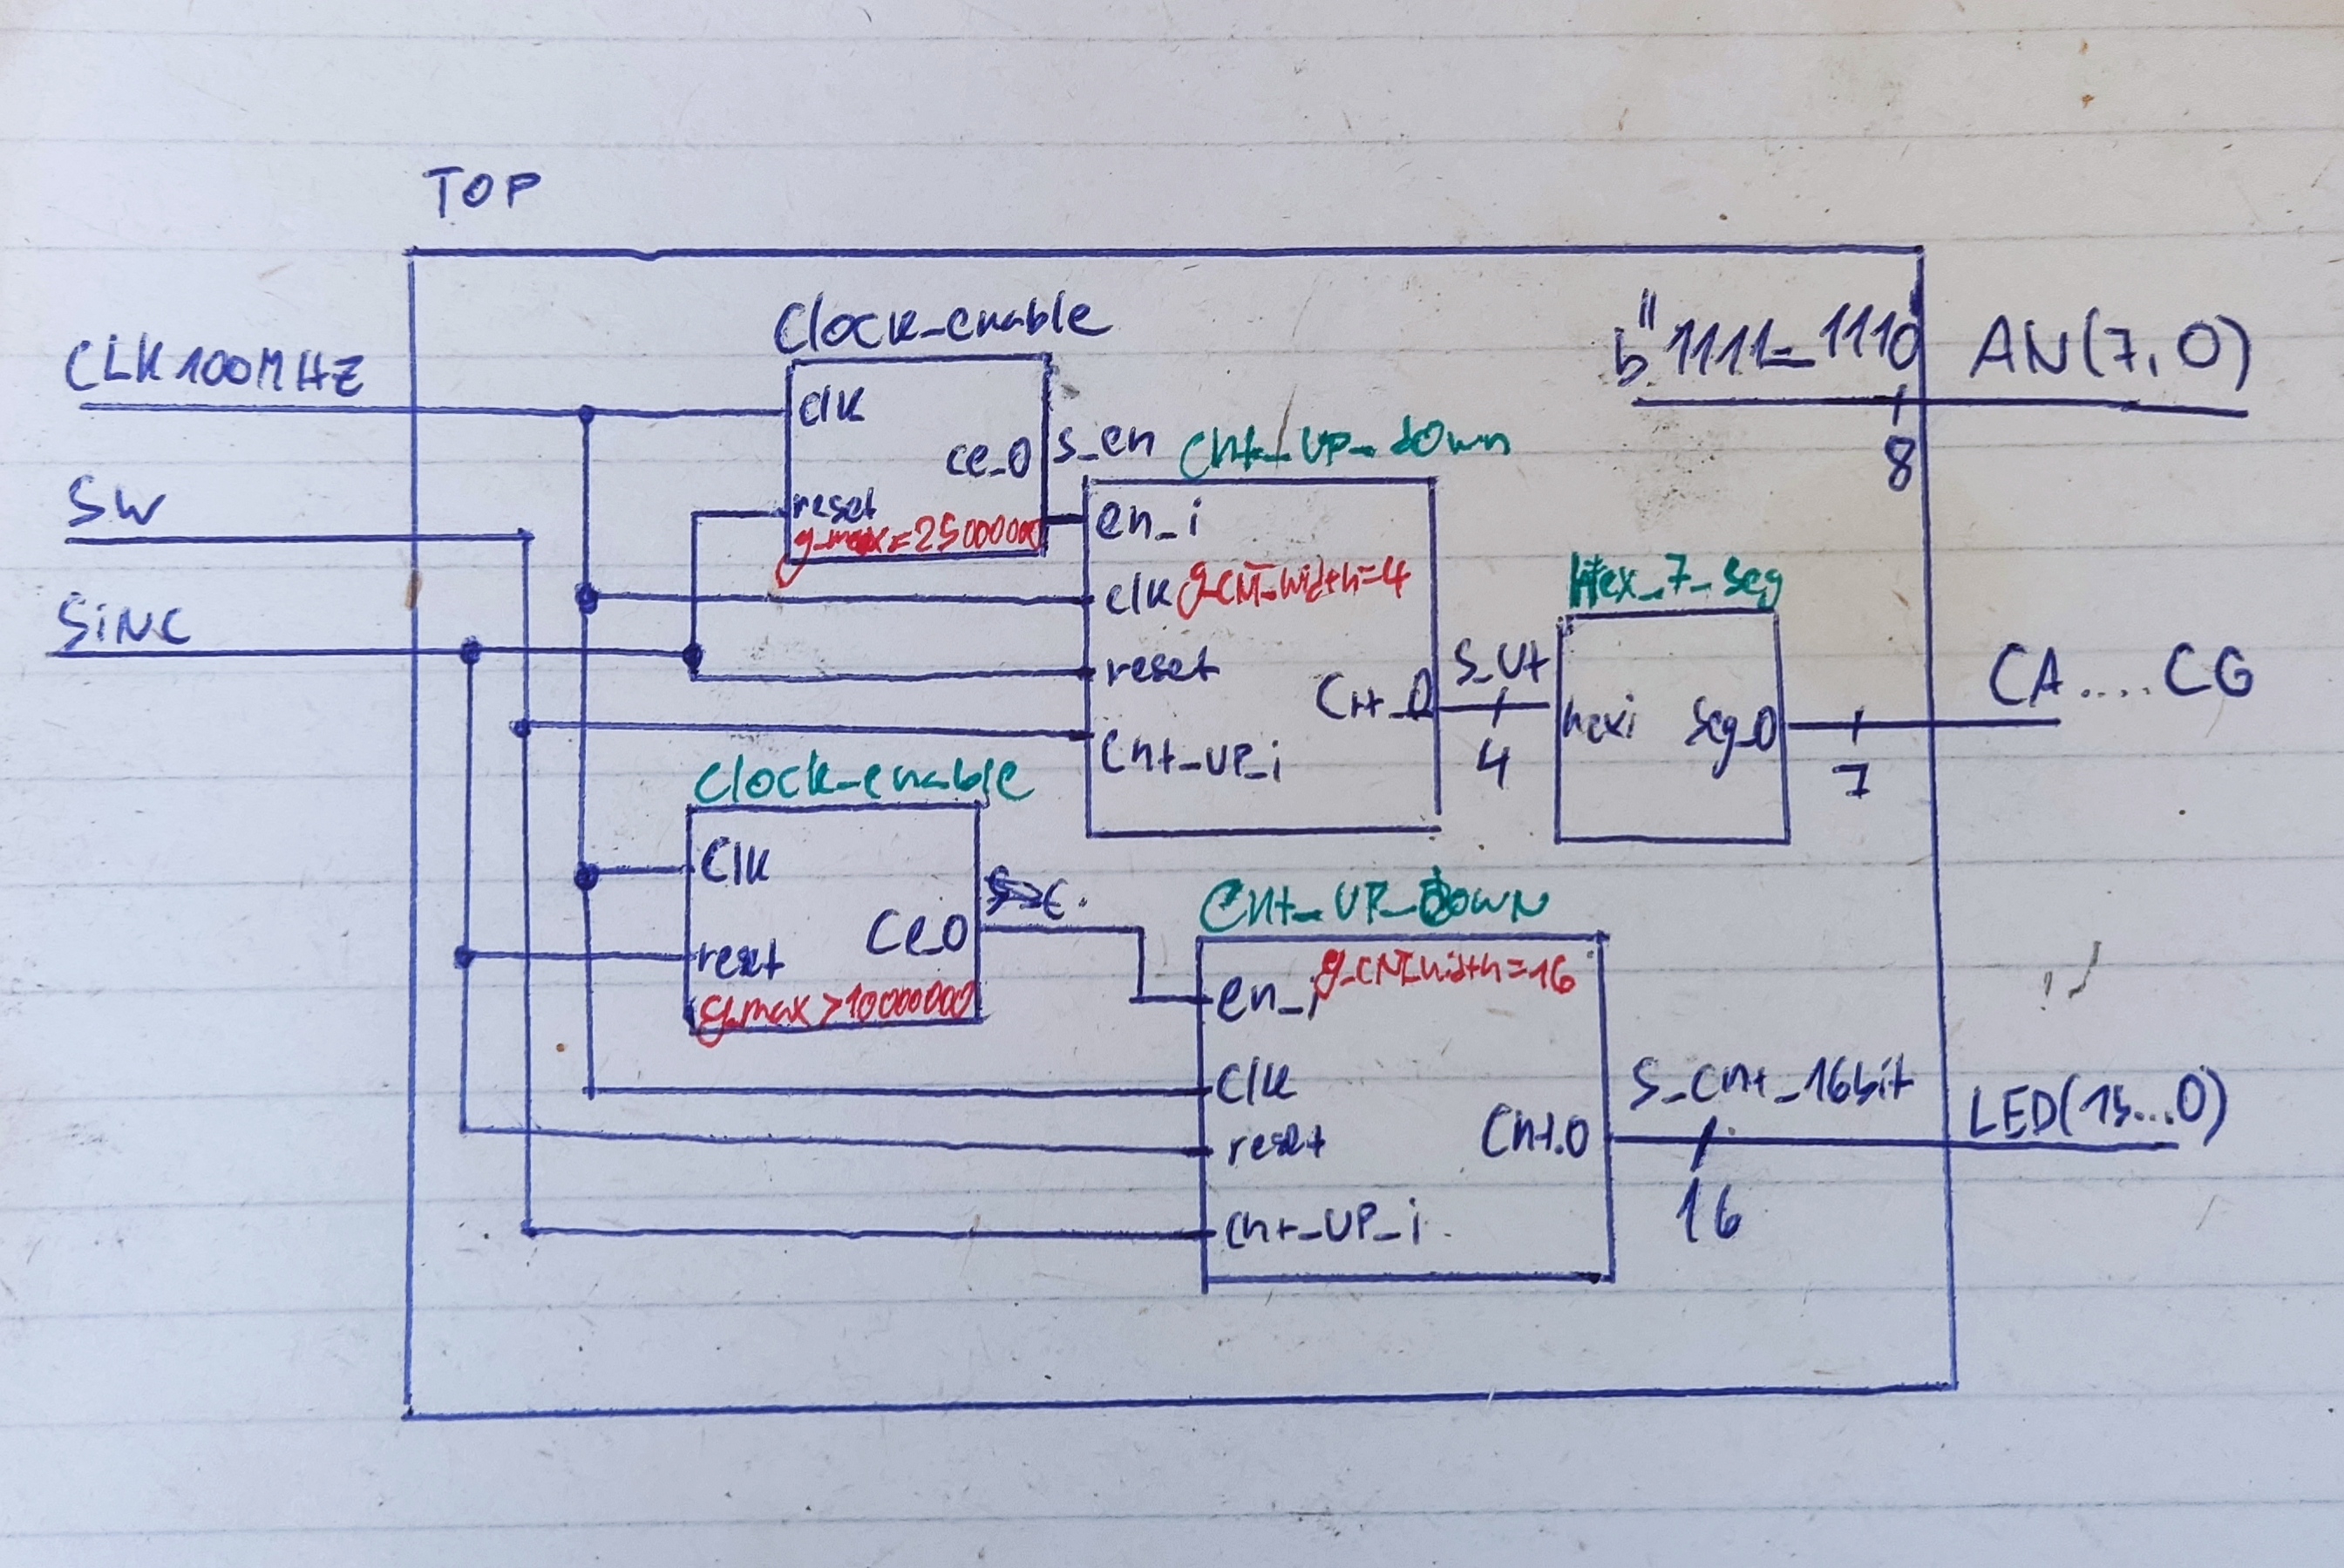 TOP
CLK100MHZ
SW
SINC
Clock_enable
clk
ce_0
reset
g_max=25000000
s_en
Cnt_UP_down
en_i
clk
g_CNT_width=4
reset
Cnt_UP_i
4
Hex_7_seg
hexi
seg_0
7
b"1111_1110"
8
AN(7,0)
CA....CG
Clock_enable
Clk
Ce_0
reset
Cnt_UP_Down
g_CNT_width=16
en_i
Clk
reset
Cnt_UP_i
Cnt.0
S_Cnt_16bit
16
LED(15...0)